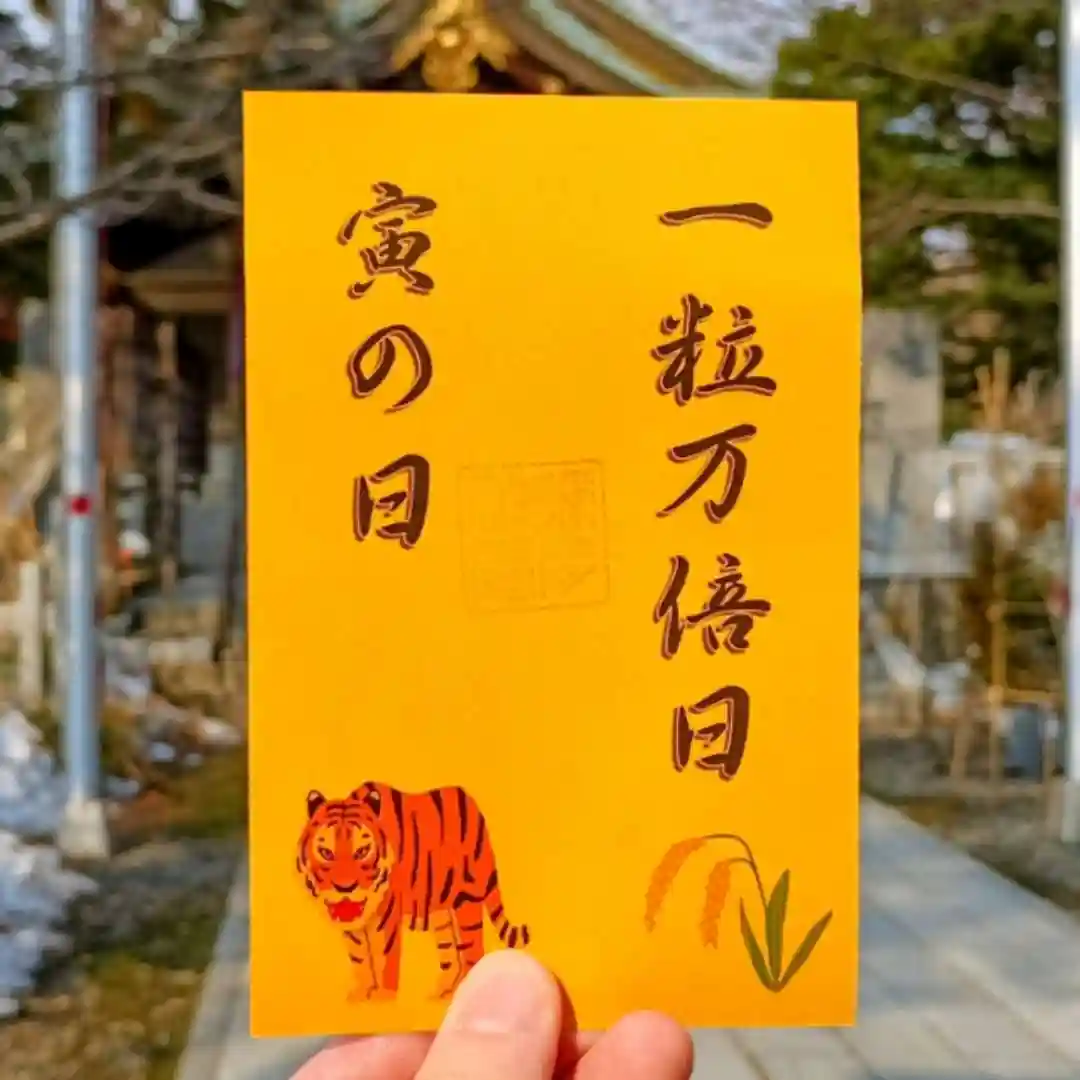 一粒万倍日
寅の日